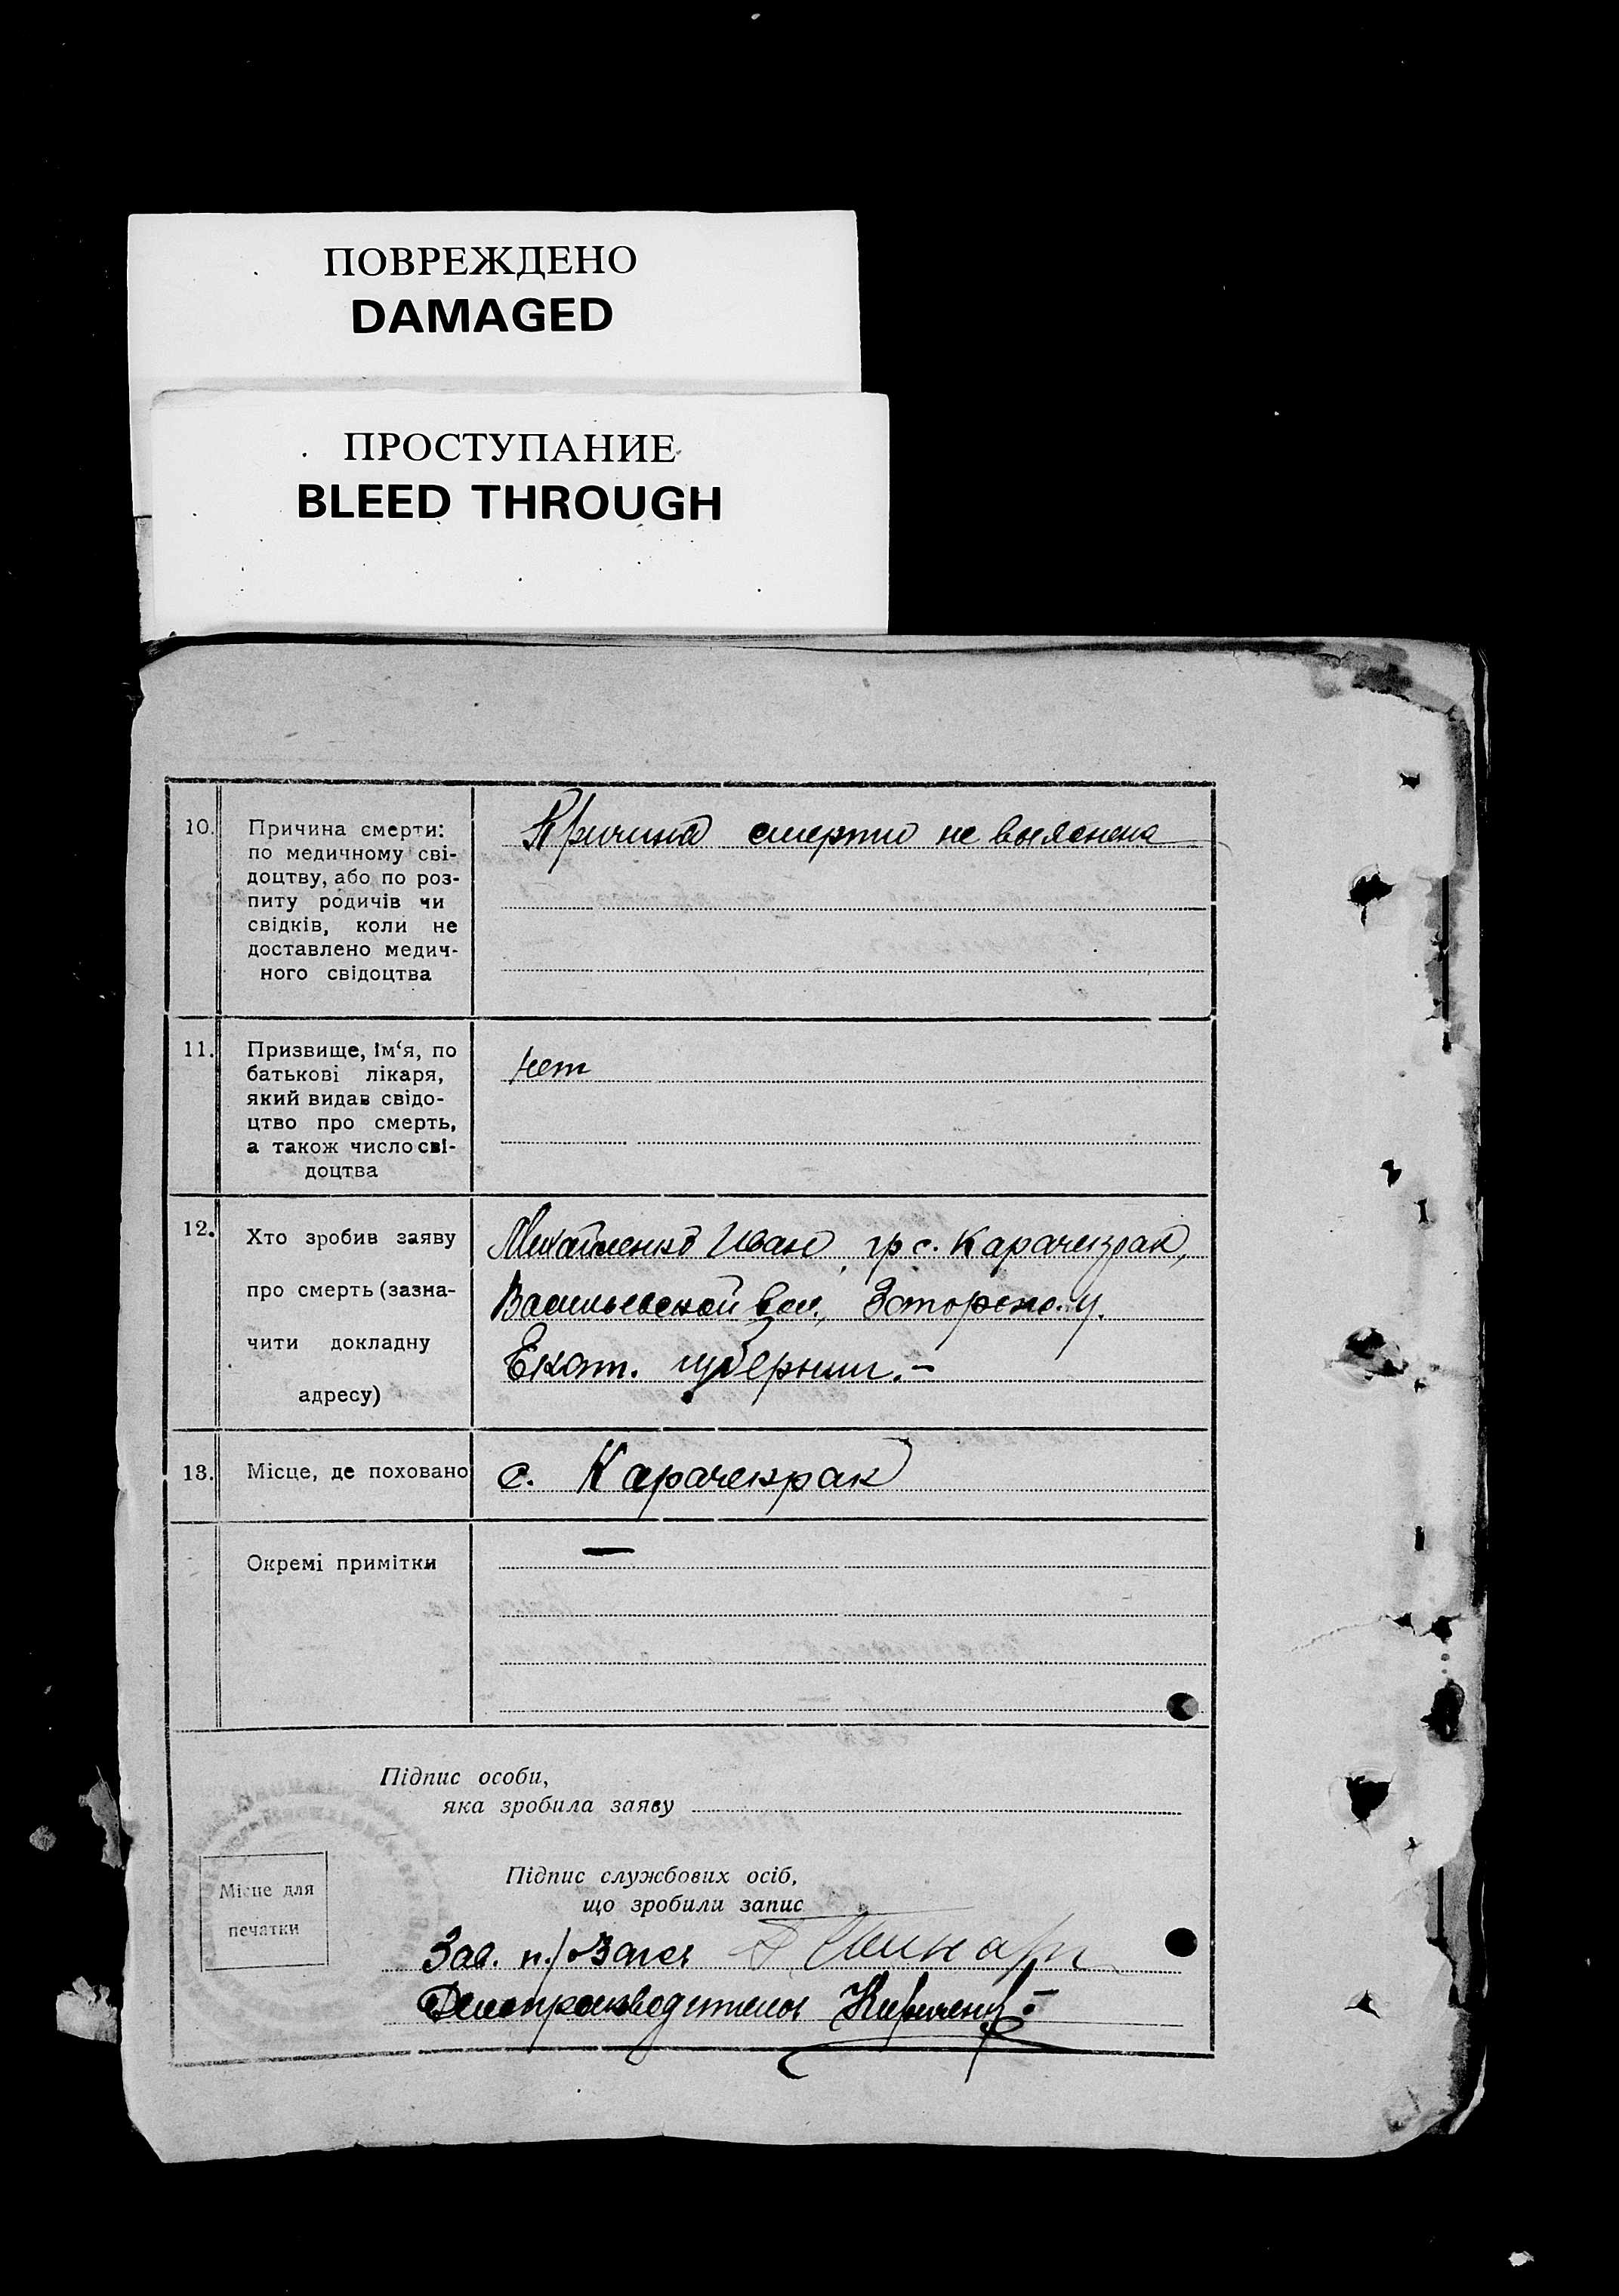 ПОВРЕЖДЕНО
DAMAGED
ПРОСТУПАНИЕ
BLEED THROUGH
10. Причина смерти:
по медичному сві-
доцтву, або по роз-
питу родичів чи
свідків, коли не
доставлено медич-
ного свідоцтва
Причина смерти не выяснена
11. Призвище, ім‘я, по
батькові лікаря,
який видав свідо-
цтво про смерть,
а також число сві-
доцтва
нет
12. Хто зробив заяву
про смерть (зазна-
чити докладну
адресу)
Михайленко Иван, гр с. Карачекрак,
Васильевской вол., Запорожс. у.
Екат. губернии. –
13. Місце, де поховано
с. Карачекрак
Окремі примітки
—
Підпис особи,
яка зробила заяву
Підпис службових осіб,
що зробили запис
Місце для
печатки
Зав. п/о Загса
Делопроизводитель Кириченко